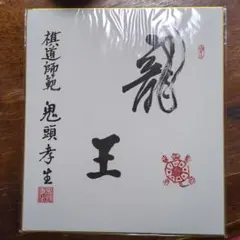 龍
王
棋道師範 鬼頭孝生